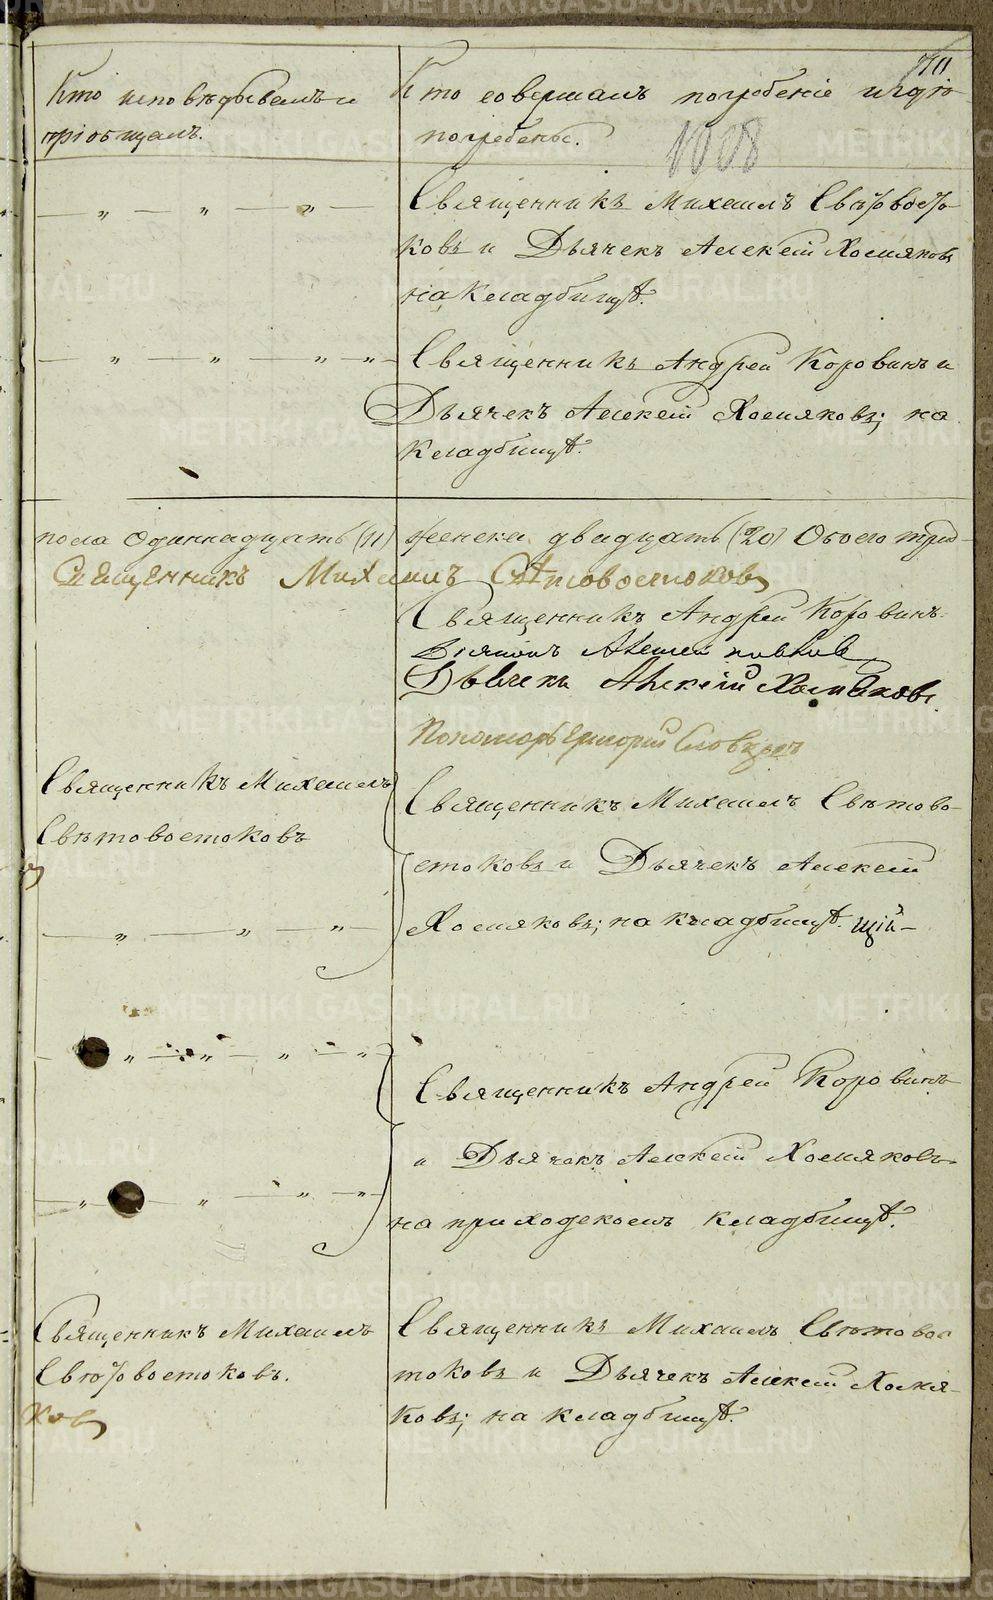 Кто исповѣдывалъ и
пріобщалъ.
Кто совершалъ погребеніе и гдѣ
погребены.
1008
Священникъ Михаилъ Свѣтовосто-
ковъ и Дьячекъ Алексѣй Хомяковъ
на кладбищѣ.
Священникъ Андрей Коровинъ и
Дьячекъ Алексѣй Хомяковъ; на
кладбищѣ.
пола одиннадцать (11) женска двадцать (20) Обоего трид-
Священникъ Михаилъ Свѣтовостоковъ
Священникъ Андрей Коровинъ
Дьячекъ Алексѣй Хомяковъ.
Пономарь Григорій
Священникъ Михаилъ
Свѣтовостоковъ
Священникъ Михаилъ Свѣтово-
стоковъ и Дьячекъ Алексѣй
Хомяковъ; на кладбищѣ. щій-
Священникъ Андрей Коровинъ
и Дьячекъ Алексѣй Хомяковъ
на приходскомъ кладбищѣ.
Священникъ Михаилъ
Свѣтовостоковъ.
ковъ
Священникъ Михаилъ Свѣтовос
токовъ и Дьячекъ Алексѣй Хомя-
ковъ; на кладбищѣ.
METRIKI.GASO-URAL.RU